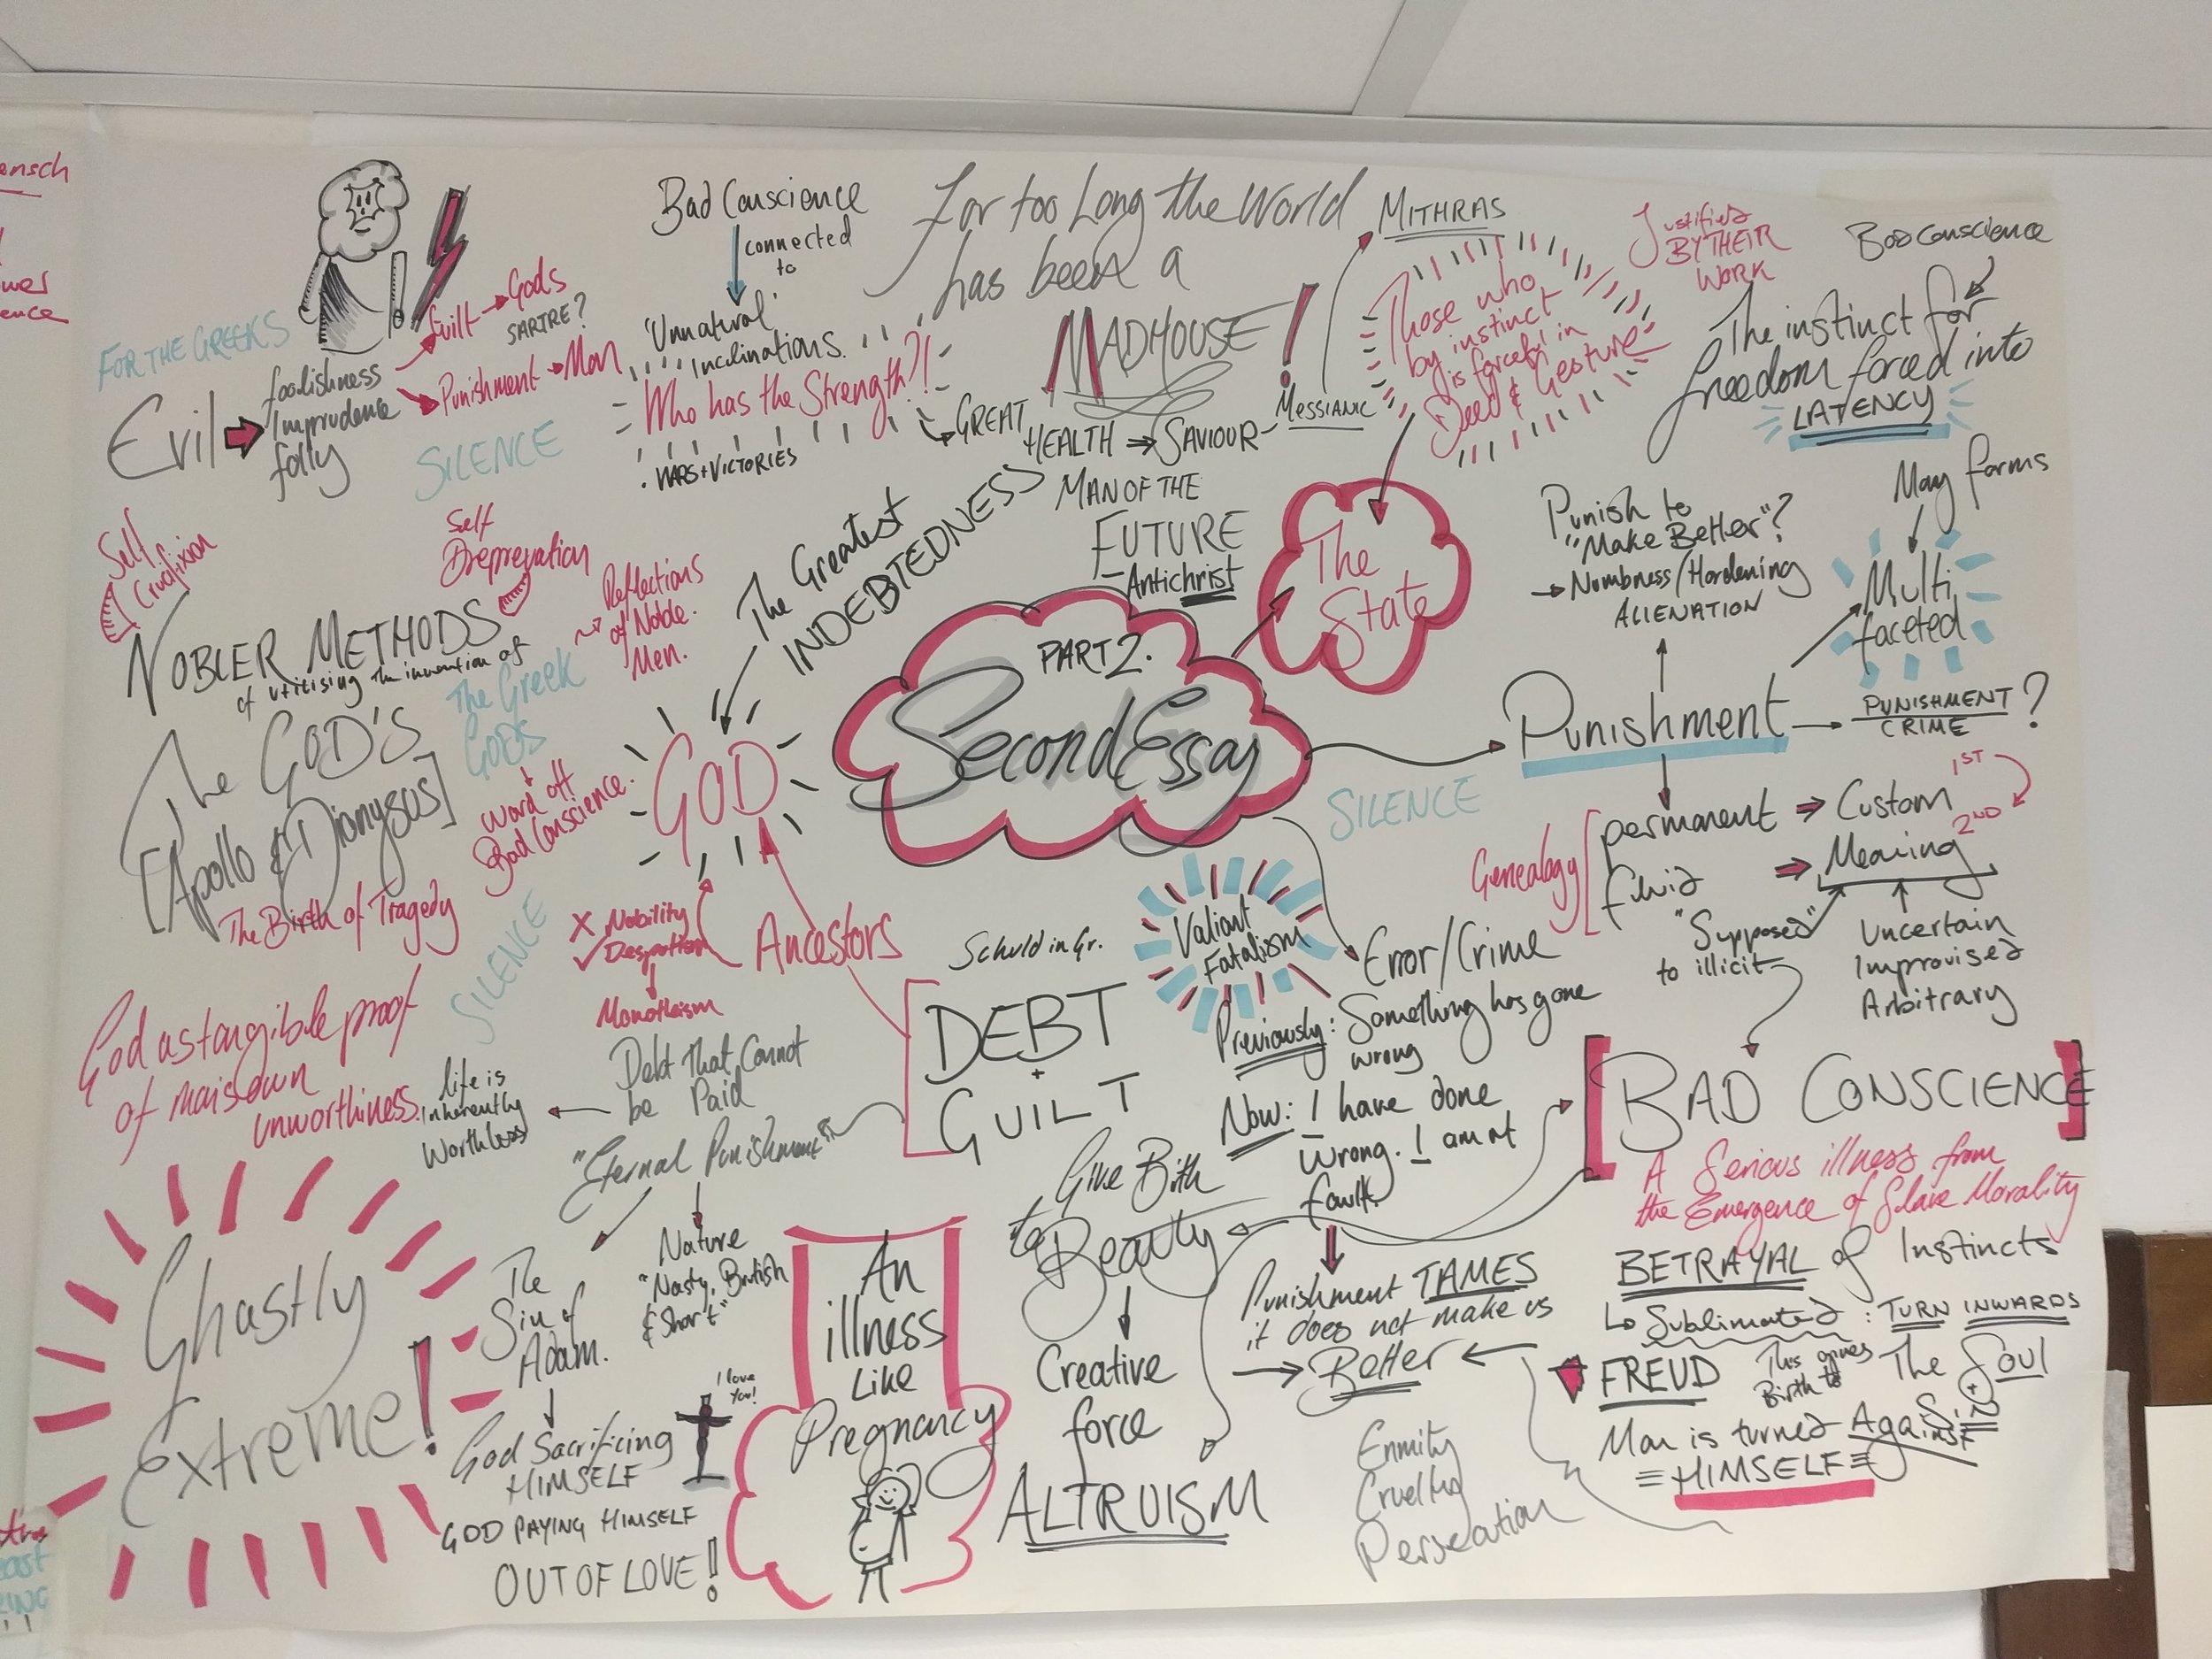 ensch
wer
ence
FOR THE GREEKS
Evil
foolishness
Imprudence
folly
Guilt
Gods
SARTRE?
Punishment
Man
SILENCE
Bad Conscience
connected
to
'Unnatural'
Inclinations.
Who has the Strength?!
WARS + VICTORIES
For too Long the World
has been a
MADHOUSE!
GREAT
HEALTH
SAVIOUR
MESSIANIC
MITHRAS
MAN OF THE
FUTURE
- Antichrist
Those who
by instinct
is forceful in
Deed & Gesture
Justified
BY THEIR
WORK
The
State
Bad Conscience
The instinct for
freedom forced into
LATENCY
May forms
Multi
faceted
Punish to
"Make Better"?
Numbness/Hardening
ALIENATION
Self
Crucifixion
Self
Depreevation
NOBLER METHODS
of utilising the invention of
The GOD'S
[Apollo & Dionysus]
The Birth of Tragedy
The Greek
GODS
Reflections
of Noble
Men.
Ward off
Bad Conscience.
The Greatest
INDEBTEDNESS
GOD
PART 2.
Second Essay
Punishment
PUNISHMENT
CRIME
?
SILENCE
Genealogy
permanent
Custom
1ST
fluid
Meaning
2ND
"Supposed"
to illicit
Uncertain
Improvised
Arbitrary
SILENCE
X Nobility
✓ Despotism
Monotheism
Ancestors
Schuld in Gr.
DEBT
+
GUILT
Valiant
Fatalism
Error/Crime
Previously: Something has gone
wrong
Now: I have done
Wrong. I am at
fault
Punishment TAMES
it does not make us
Better
God as tangible proof
of man's own
unworthiness.
Debt That Cannot
be Paid
life is
inherently
Worthless
"Eternal Punishment"
The
Sin of
Adam.
Nature
"Nasty, Brutish
& Short"
Ghastly
Extreme!
God Sacrificing
HIMSELF
I love
You!
GOD PAYING HIMSELF
OUT OF LOVE!
An
illness
Like
Pregnancy
Give Birth
to Beauty
Creative
force
ALTRUISM
Enmity
Cruelty
Persecution
[BAD CONSCIENCE]
A Serious illness from
the Emergence of Slave Morality
BETRAYAL of Instincts
Sublimated: TURN INWARDS
FREUD
This gives
Birth to
The Soul
+
Sin
Man is turned Against
HIMSELF
east